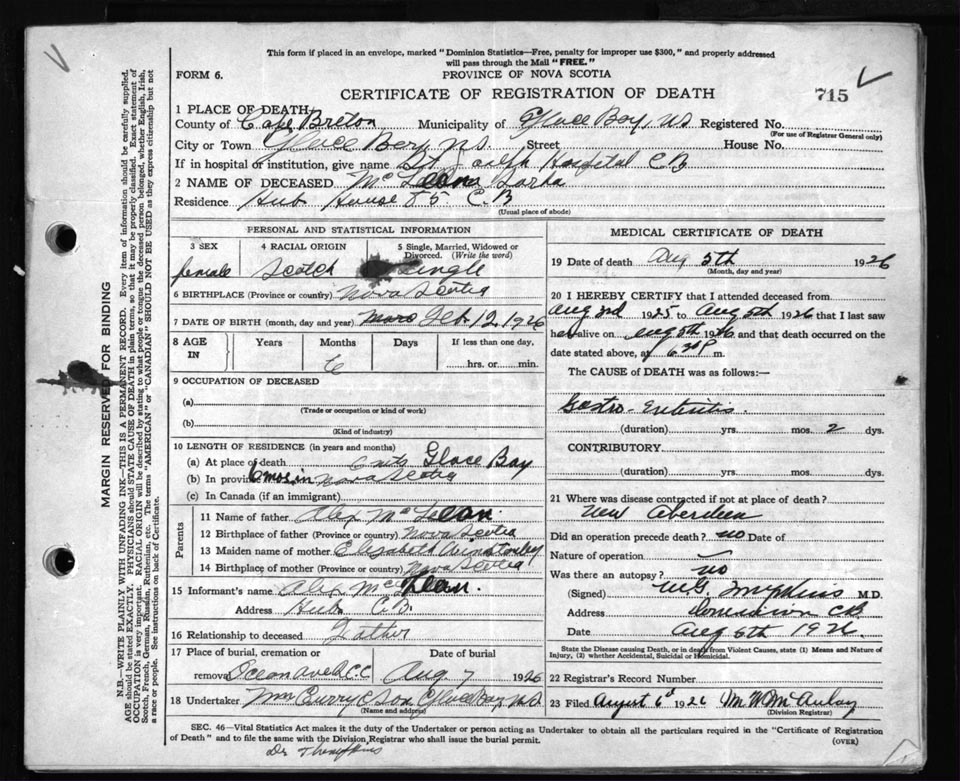 This form if placed in an envelope, marked "Dominion Statistics—Free, penalty for improper use $300," and properly addressed
will pass through the Mail "FREE."
FORM 6.
PROVINCE OF NOVA SCOTIA
CERTIFICATE OF REGISTRATION OF DEATH
715
1 PLACE OF DEATH
County of Cape Breton Municipality of Glace Bay, NS Registered No.
(For use of Registrar General only)
City or Town Glace Bay, N.S. Street House No.
If in hospital or institution, give name St Joseph Hospital C B
2 NAME OF DECEASED
Residence Hub House 85 C.B
(Usual place of abode)
PERSONAL AND STATISTICAL INFORMATION
3 SEX 4 RACIAL ORIGIN 5 Single, Married, Widowed or Divorced. (Write the word)
female Scotch Single
6 BIRTHPLACE (Province or country) Nova Scotia
7 DATE OF BIRTH (month, day and year) Feb. 12, 1926
8 AGE IN Years Months Days If less than one day.
6 hrs. or min.
9 OCCUPATION OF DECEASED
(a)
(Trade or occupation or kind of work)
(b)
(Kind of industry)
10 LENGTH OF RESIDENCE (in years and months)
(a) At place of death Glace Bay
(b) In province 6 mos. in Nova Scotia
(c) In Canada (if an immigrant)
Parents
11 Name of father Alex McLean
12 Birthplace of father (Province or country) Nova Scotia
13 Maiden name of mother Elizabeth
14 Birthplace of mother (Province or country) Nova Scotia
15 Informant's name Alex McLean.
Address Hub C.B.
16 Relationship to deceased Father
17 Place of burial, cremation or removal Date of burial
Ocean Ave R.C.C Aug 7 1926
18 Undertaker Wm Curry & Son Glace Bay, N.S
(Name and address)
MEDICAL CERTIFICATE OF DEATH
19 Date of death Aug 5th 1926
(Month, day and year)
20 I HEREBY CERTIFY that I attended deceased from
Aug 3rd 1925 to Aug 5th 1926 that I last saw
her alive on Aug 5th 1926 and that death occurred on the
date stated above, at 6 30 P m.
The CAUSE of DEATH was as follows:—
Gastro-Enteritis.
(duration) yrs. mos. 2 dys.
CONTRIBUTORY
(duration) yrs. mos. dys.
21 Where was disease contracted if not at place of death?
New Aberdeen
Did an operation precede death? no Date of
Nature of operation
Was there an autopsy? no
(Signed) M.G. Tompkins M.D.
Address Dominion CB
Date Aug 6th 1926
State the Disease causing Death, or in death from Violent Causes, state (1) Means and Nature of
Injury, (2) whether Accidental, Suicidal or Homicidal.
22 Registrar's Record Number
23 Filed August 6th 1926 Wm W McAulay
(Division Registrar)
SEC. 46—Vital Statistics Act makes it the duty of the Undertaker or person acting as Undertaker to obtain all the particulars required in the "Certificate of Registration
of Death" and to file the same with the Division Registrar who shall issue the burial permit.
(OVER)
Dr Thompkins
MARGIN RESERVED FOR BINDING
N.B.—WRITE PLAINLY WITH UNFADING INK—THIS IS A PERMANENT RECORD. Every item of information should be carefully supplied.
AGE should be stated EXACTLY. PHYSICIANS should STATE CAUSE OF DEATH in plain terms, so that it may be properly classified. Exact statement of
OCCUPATION is very important. RACIAL ORIGIN will be described by stating to what people or tongue the deceased person belonged, whether English, Irish,
Scotch, French, German, Russian, Ruthenian, etc. The terms "AMERICAN" or "CANADIAN" SHOULD NOT BE USED as they express citizenship but not
a race or people. See instructions on back of Certificate.